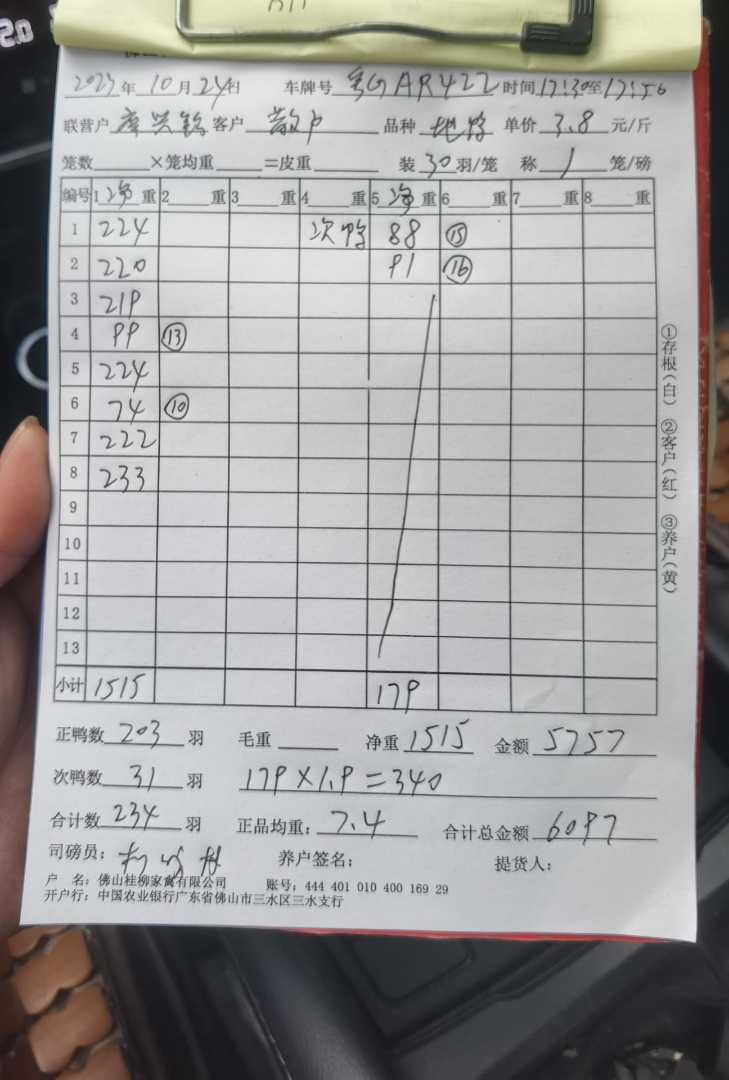 2023年10月24日 车牌号 粤GAR422 时间17:30至17:56
联营户 客户 散户 品种 单价 3.8 元/斤
笼数 ×笼均重 =皮重 装30羽/笼 称 1 笼/磅
编号 1净重 2 重 3 重 4 重 5净重 6 重 7 重 8 重
1 224 次鸭 88 ⑮
2 220 91 ⑯
3 219
4 99 ⑬
5 224
6 74 ⑩
7 222
8 233
9
10
11
12
13
小计 1515 179
正鸭数 203 羽 毛重 净重 1515 金额 5757
次鸭数 31 羽 179×1.9=340
合计数 234 羽 正品均重: 7.4 合计总金额 6097
司磅员: 养户签名: 提货人:
户 名: 佛山桂柳家禽有限公司 账号: 444 401 010 400 169 29
开户行: 中国农业银行广东省佛山市三水区三水支行
①存根(白) ②客户(红) ③养户(黄)